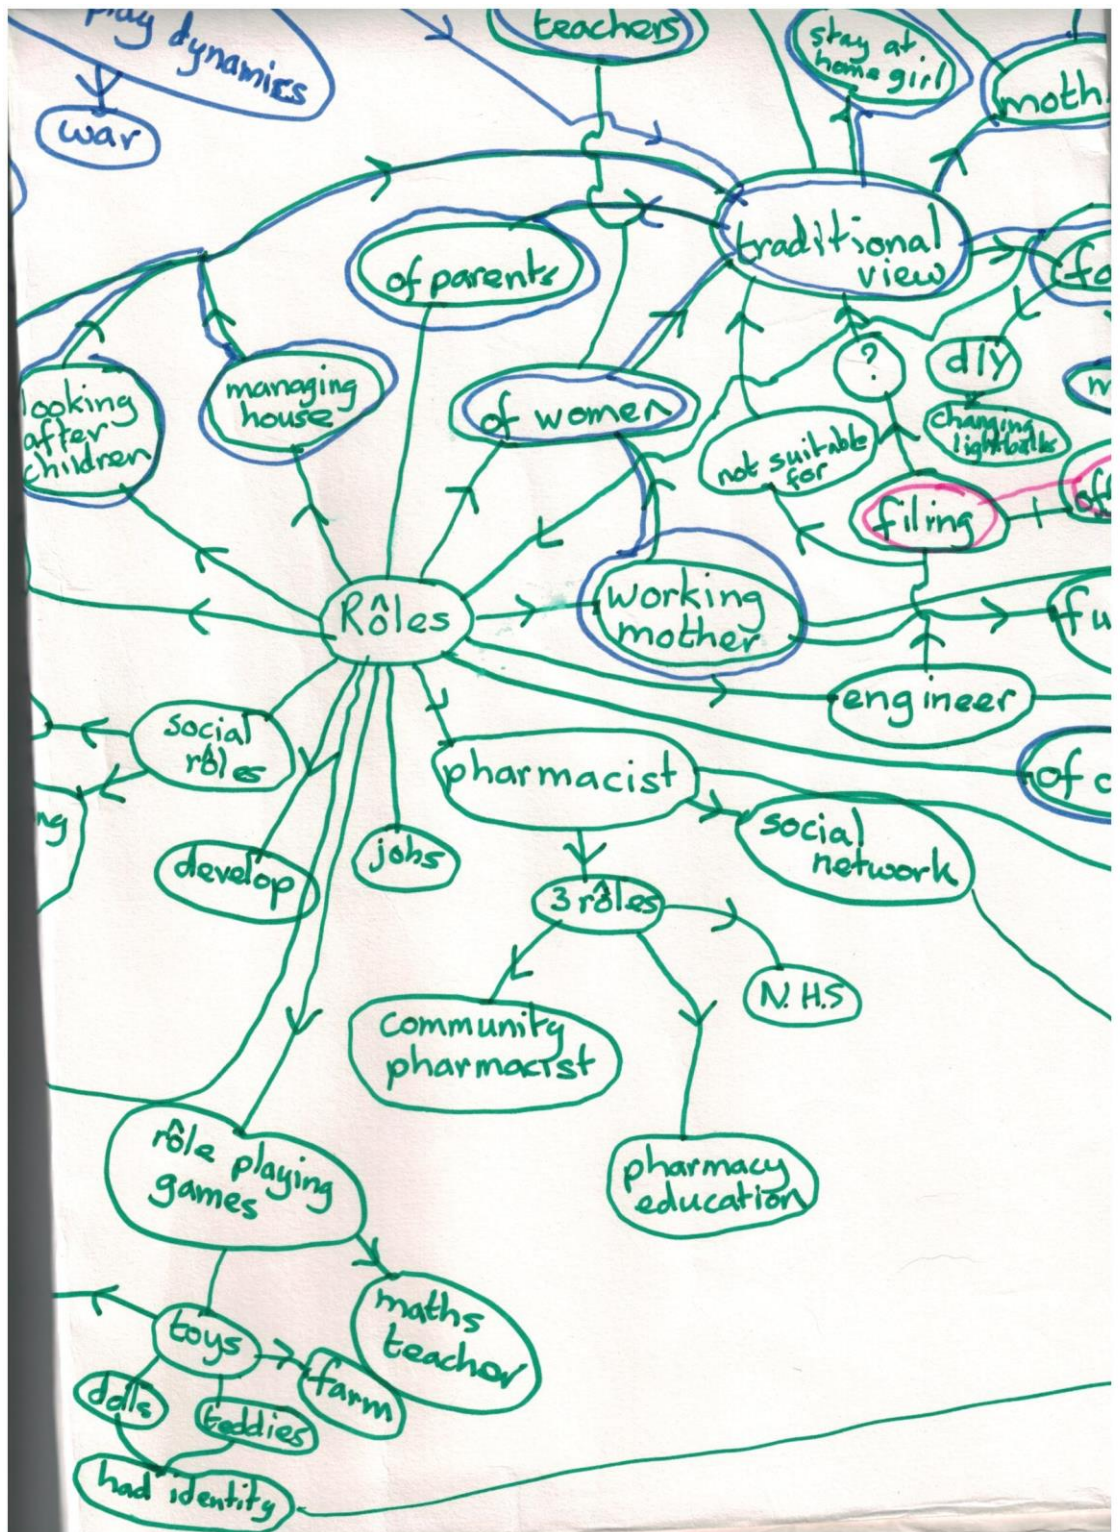 play dynamics
war
teachers
stay at
home girl
moth
traditional
view
of parents
fa
looking
after
children
managing
house
of women
?
diy
changing
lightbulbs
m
not suitable
for
filing
off
working
mother
fu
Rôles
engineer
social
rôles
pharmacist
of c
ng
develop
jobs
social
network
3 rôles
N.H.S
community
pharmacist
pharmacy
education
rôle playing
games
maths
teacher
toys
farm
dolls
teddies
had identity